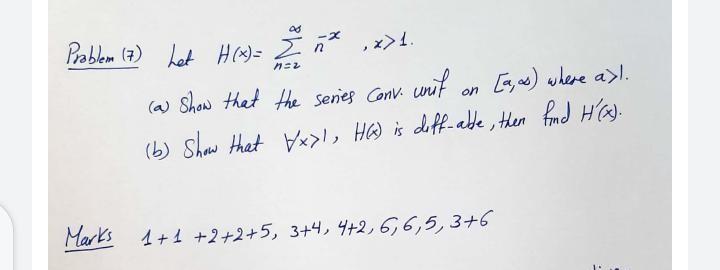 Problem (7) Let H(x)= ∞∑n=2 n^-x , x>1.
(a) Show that the series Conv. unif on [a,∞) where a>1.
(b) Show that ∀x>1, H(x) is diff-able, then find H'(x).
Marks 1+1 +2+2+5, 3+4, 4+2, 6, 6, 5, 3+6